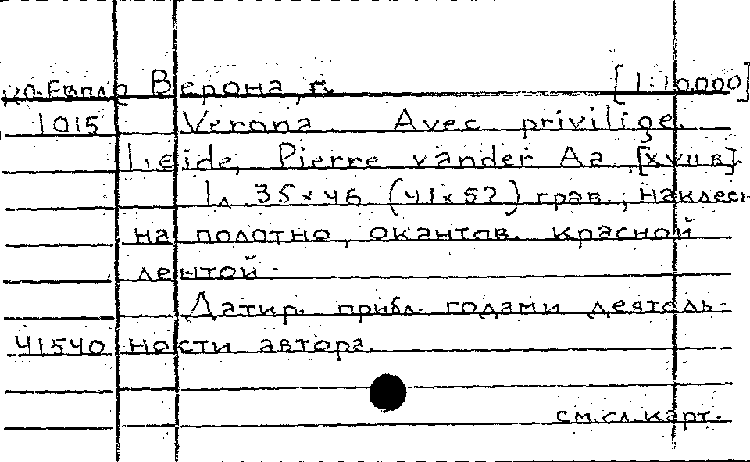 Верона, г. [1:10000]
1015 Verona Avec privilige.
Leide, Pierre vander Aa [XVII в].
1 л 35×46 (41×52) грав., наклеен
на полотно, окантов. красной
лентой.
Датир. прибл. годами деятель-
41540 ности автора.
см.сл.карт.